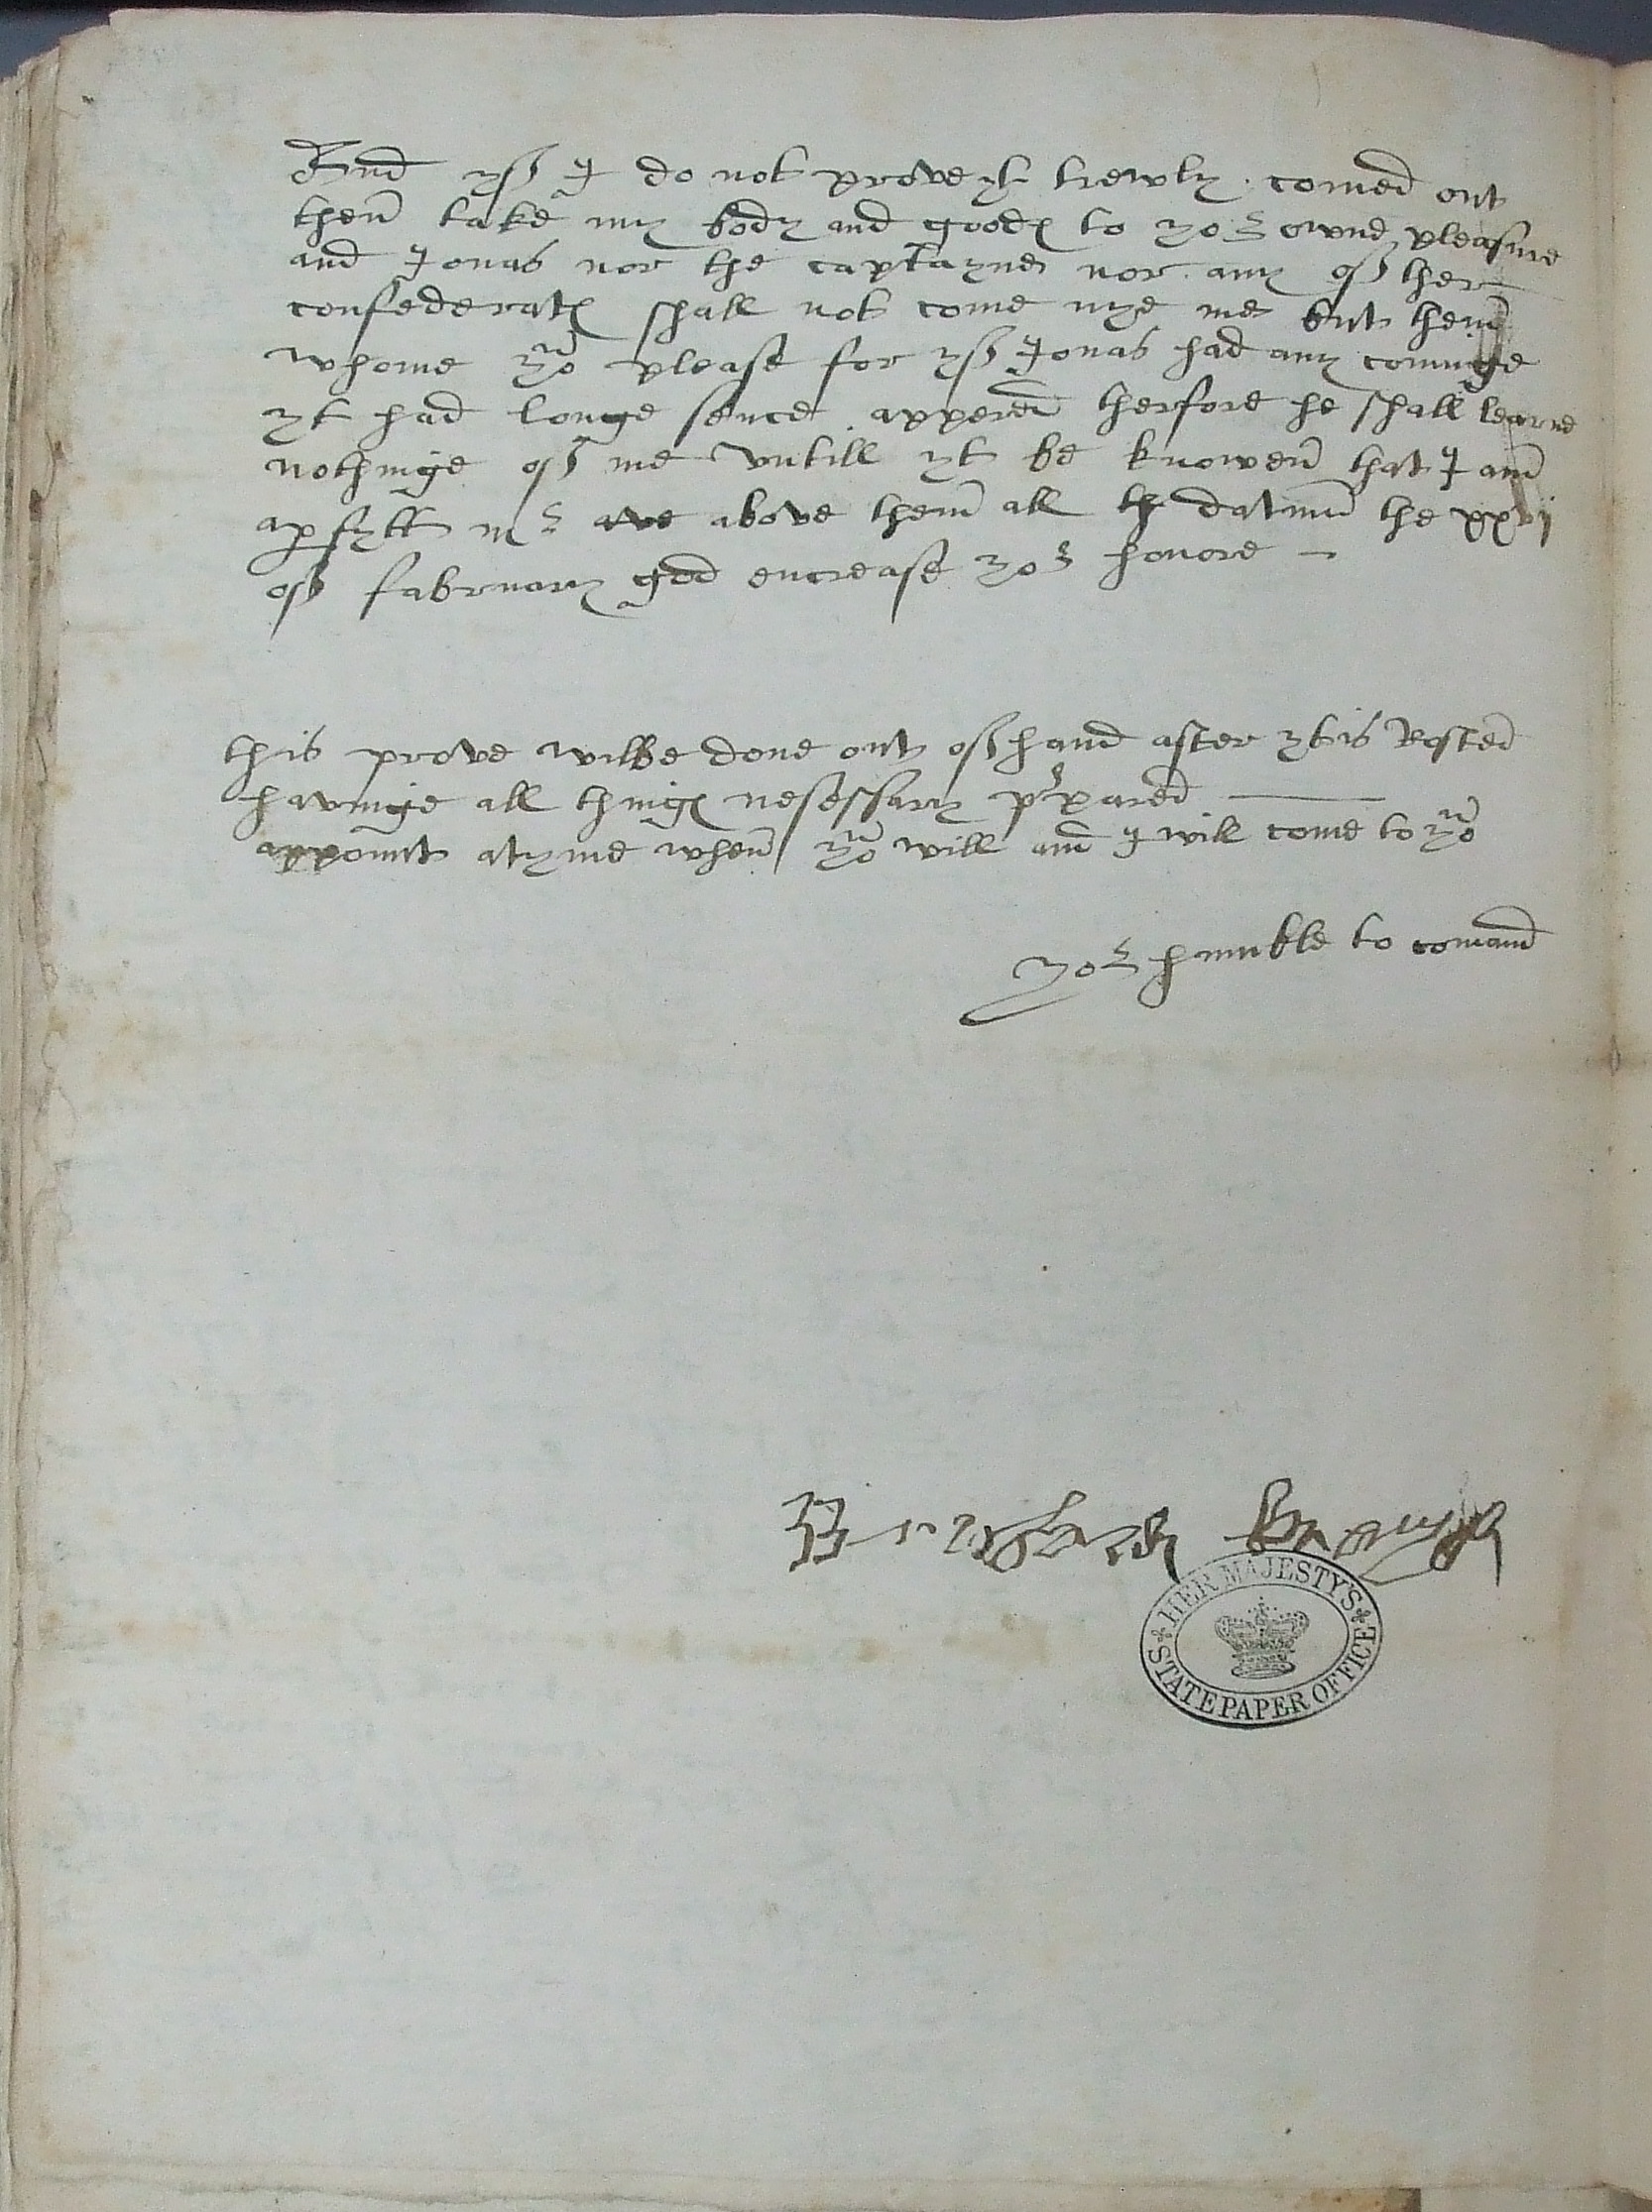 And yf I do not prove yt trewly comed out
then take my body and goodes to yor owne pleasure
and Jonas nor the captayne nor any of ther
confederates shall not come nye me but them
whome you please for yf Jonas had any coninge
yt had longe sence appered therfore he shall learne
nothinge of me vntill yt be knowen that I am
a perfytt mr above them all datum the xxvij
of fabruary god encrease yor honore

this prove wilbe done out of hand after yt is Rosted
havinge all thinges nesessary prepared
appoint a tyme when you will and I will come to you
yor humble to comand
HER MAJESTY'S
STATE PAPER OFFICE